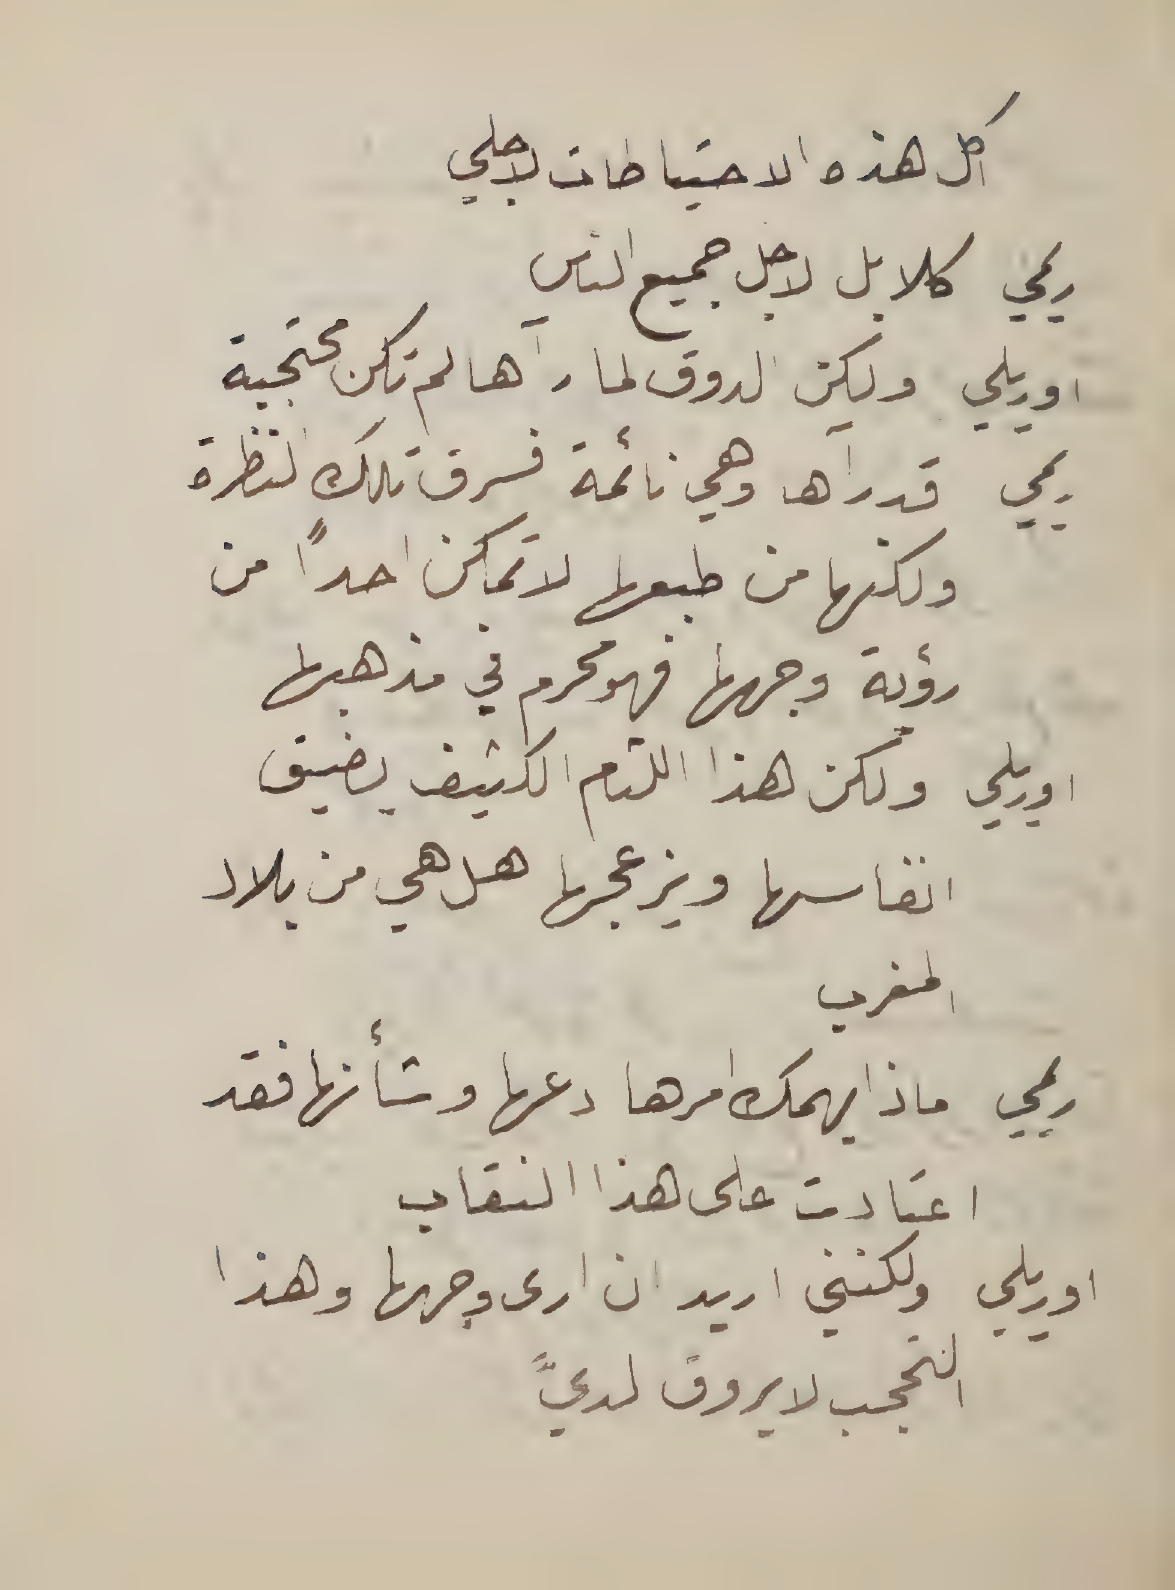 اكل هذه الاحتياطات لاجلي
ريمي كلا بل لاجل جميع الناس
اوريلي ولكن الدوق لما رآها لم تكن محتجبة
ريمي قد رآها وهي نائمة فسرق تلك النظرة
ولكنها من طبعها لا تمكن احداً من
رؤية وجهها فهو محرم في مذهبها
اوريلي ولكن هذا اللثام الكثيف يضيق
انفاسها ويزعجها هل هي من بلاد
المغرب
ريمي ماذا يهمك امرها دعها وشأنها فقد
اعتادت على هذا النقاب
اوريلي ولكنني اريد ان ارى وجهها وهذا
التحجب لا يروق لديَّ